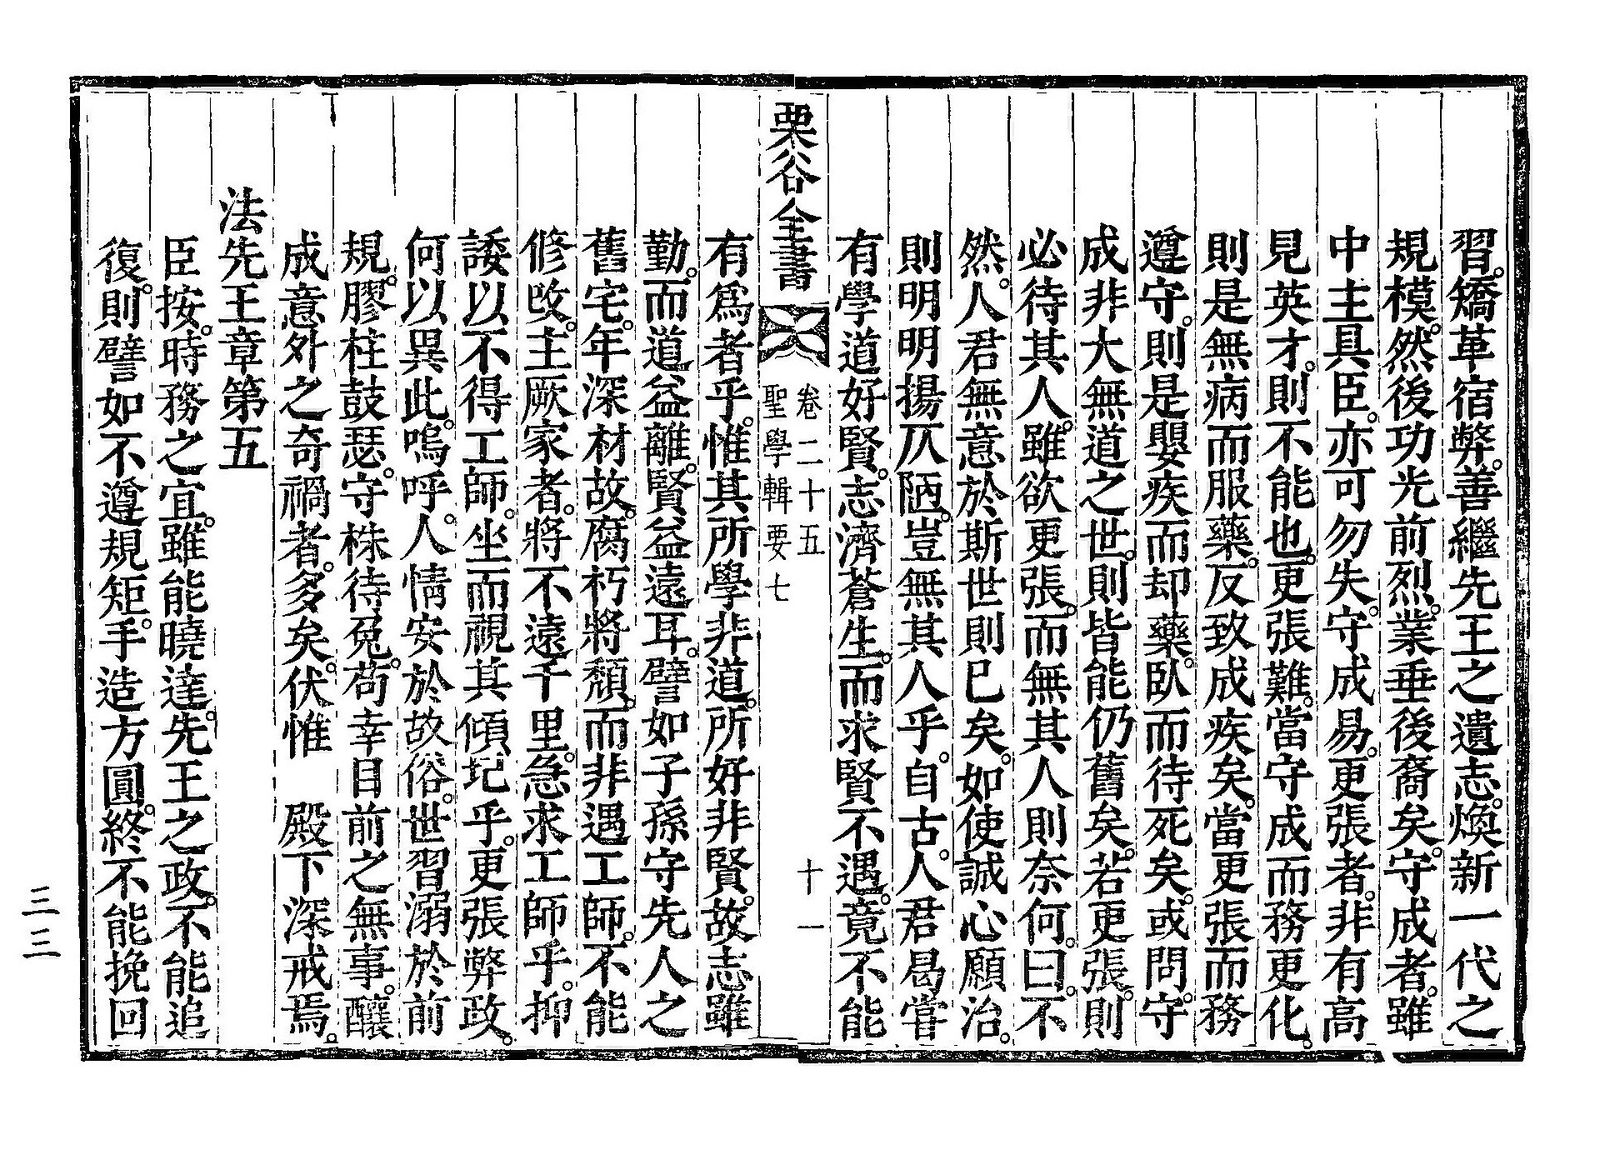 習。矯革宿弊。善繼先王之遺志。煥新一代之
規模。然後功光前烈。業垂後裔矣。守成者。雖
中主具臣。亦可勿失。守成易。更張者。非有高
見英才。則不能也。更張難。當守成而務更化。
則是無病而服藥。反致成疾矣。當更張而務
遵守。則是嬰疾而却藥。臥而待死矣。或問。守
成非大無道之世。則皆能仍舊矣。若更張。則
必待其人。雖欲更張。而無其人則奈何。曰。不
然。人君無意於斯世則已矣。如使誠心願治。
則明明揚仄陋。豈無其人乎。自古。人君曷嘗
有學道好賢。志濟蒼生。而求賢不遇。竟不能
栗谷全書
卷二十五
聖學輯要七
十一
有爲者乎。惟其所學非道。所好非賢。故志雖
勤。而道益離。賢益遠耳。譬如子孫守先人之
舊宅。年深材故。腐朽將頹。而非遇工師。不能
修改。主厥家者。將不遠千里。急求工師乎。抑
諉以不得工師。坐而視其傾圮乎。更張弊政。
何以異此。嗚呼。人情安於故俗。世習溺於前
規。膠柱鼓瑟。守株待兔。苟幸目前之無事。釀
成意外之奇禍者。多矣。伏惟　殿下深戒焉。
法先王章第五
臣按。時務之宜。雖能曉達。先王之政。不能追
復。則譬如不遵規矩。手造方圓。終不能挽回
三三